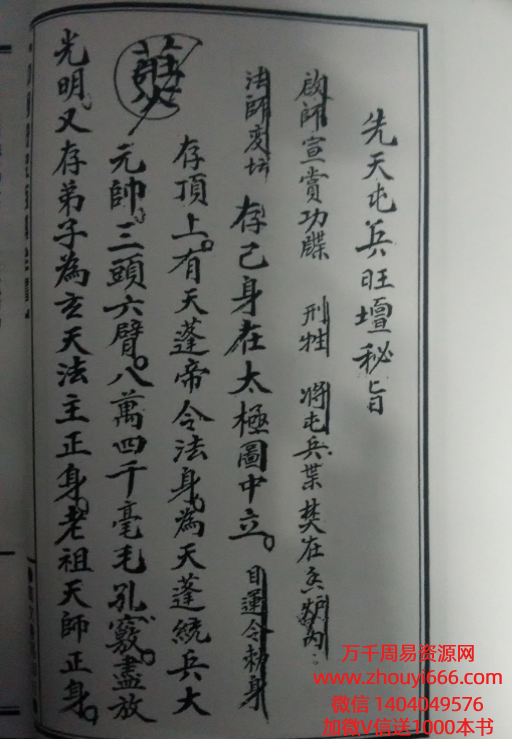 先天屯兵旺壇秘旨
啟師宣賞功牒 刑牲 将屯兵葉焚在炉内
法師变坛 存己身在太極圖中立。目運令勅身
存頂上。有天蓬帝令法身。為天蓬統兵大
元帥。三頭六臂。八萬四千毫毛孔竅。盡放
光明。又存弟子為玄天法主正身。老祖天師正身。
万千周易资源网
www.zhouyi666.com
微信 1404049576
加微V信送1000本书